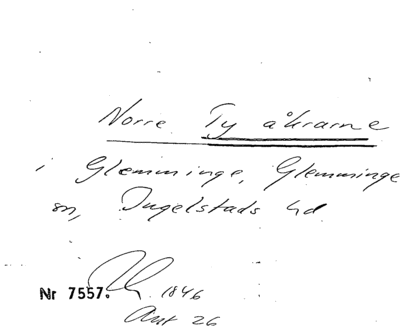 Norre Ty åkrarne
i Glemminge, Glemminge
sn, Ingelstads hd
Nr 7557. 1846
Akt 26